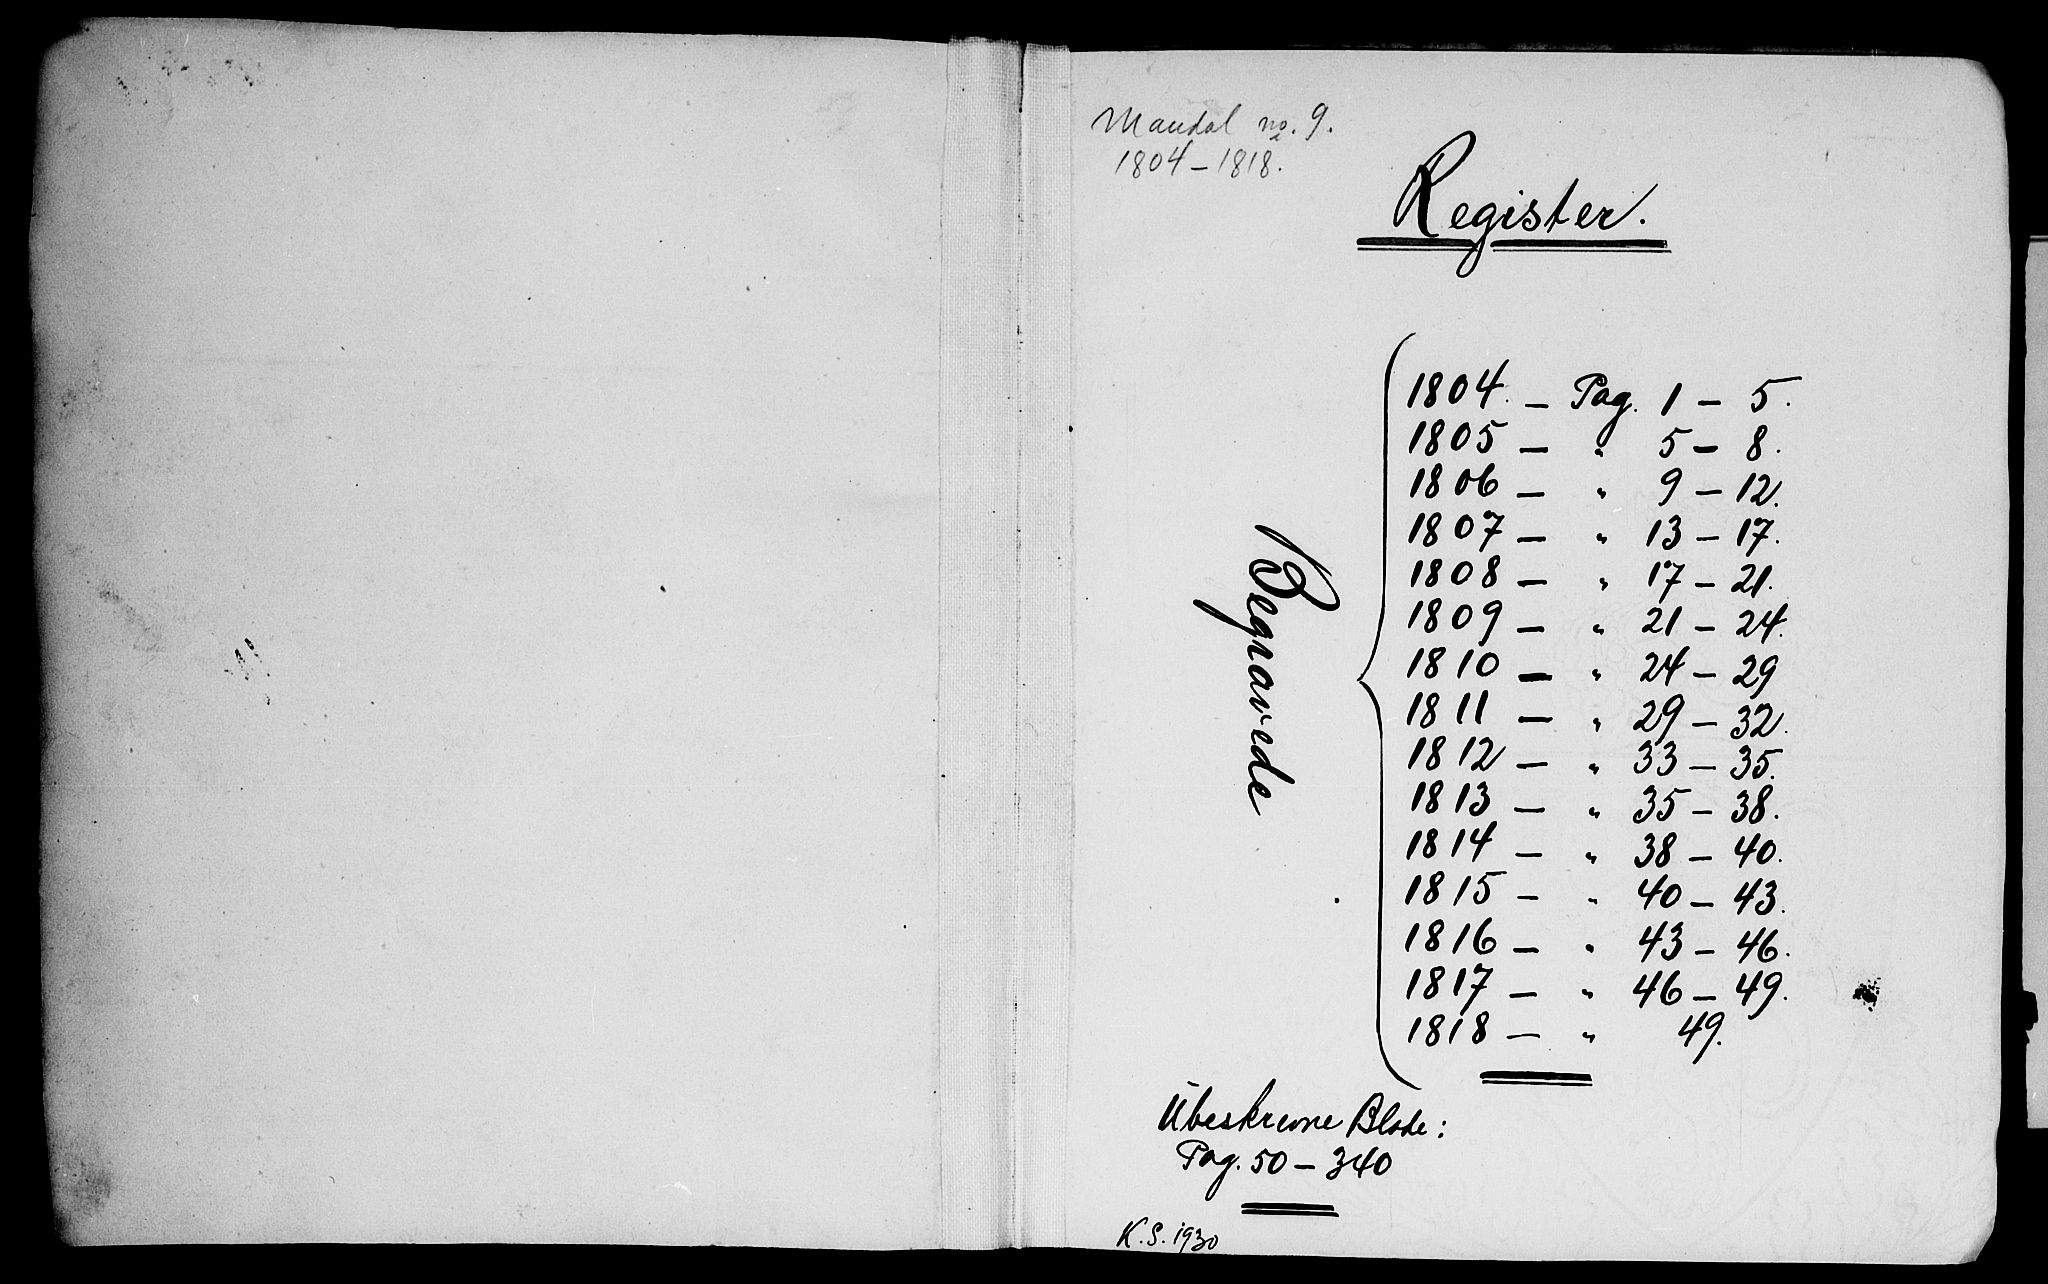 Mandal no. 9.
1804 – 1818.
Register.
Begravede
1804. – Pag. 1 – 5.
1805 – " 5 – 8.
1806 – " 9 – 12.
1807 – " 13 – 17.
1808 – " 17 – 21.
1809 – " 21 – 24.
1810 – " 24 – 29
1811 – " 29 – 32.
1812 – " 33 – 35.
1813 – " 35 – 38.
1814 – " 38 – 40.
1815 – " 40 – 43.
1816 – " 43 – 46.
1817 – " 46 – 49.
1818 – " 49.
Ubeskrevne Blade:
Pag. 50 – 340
K.S. 1930